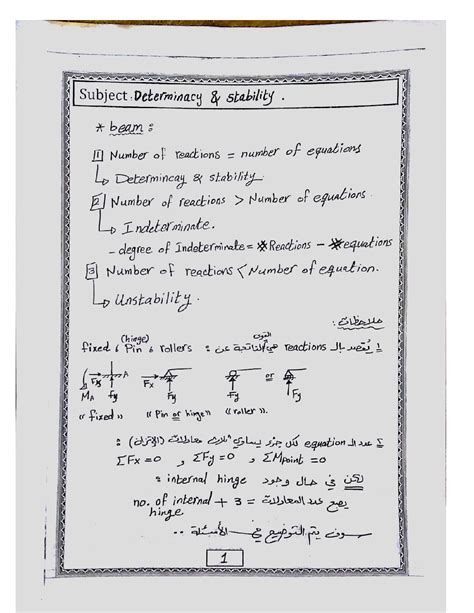 Subject: Determinacy & stability.
* beam:
1 Number of reactions = number of equations
↳ Determincay & stability
2 Number of reactions > Number of equations.
↳ Indeterminate.
- degree of Indeterminate = # Reactions - # equations
3 Number of reactions < Number of equation.
↳ Unstability.
ملاحظات:
1 يُقصد بالـ reactions هي القوى الناتجة عن: fixed & Pin (hinge) & rollers
Fx A Fx
MA Fy Fy or Fy
"fixed" "Pin or hinge" "roller".
2 عدد الـ equation لكل جزء يساوي ثلاث معادلات (الإتزان):
ΣFx = 0 و ΣFy = 0 و ΣMpoint = 0
لكن في حال وجود internal hinge:
يصبح عدد المعادلات = 3 + no. of internal hinge
سوف يتم التوضيح في الأمثلة ..
1